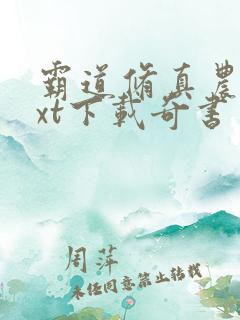 霸道修真農
xt下載奇書
周萍
未经同意禁止转载